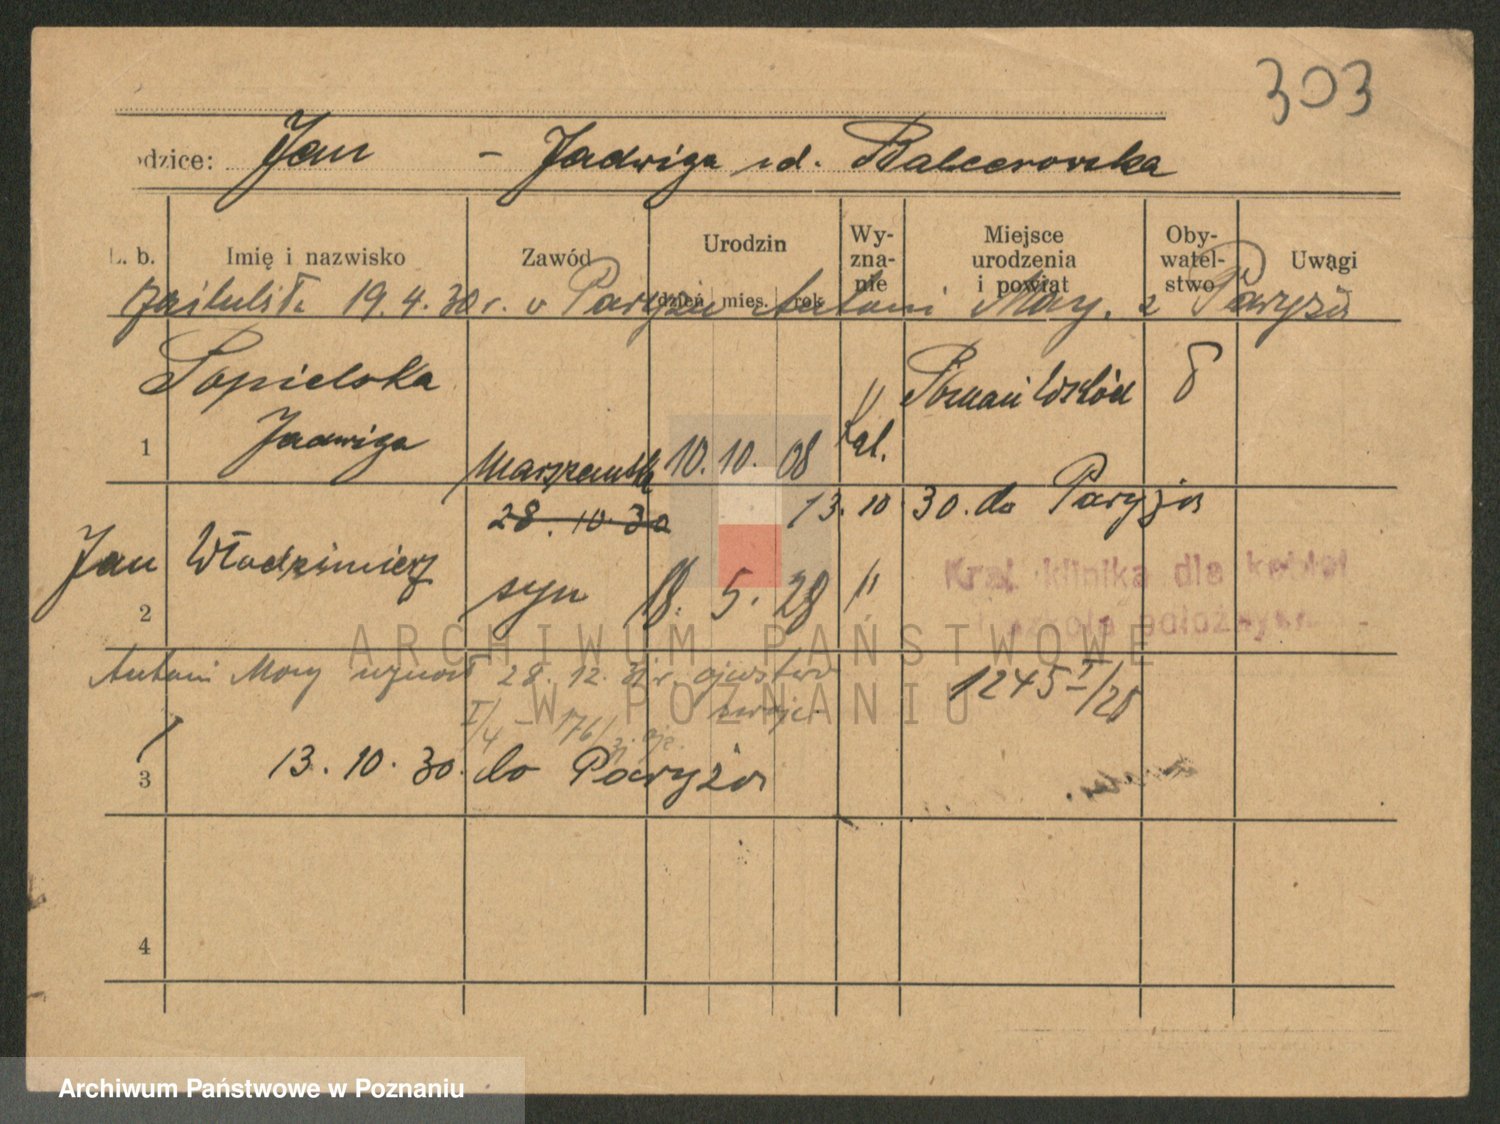 303
odzice: Jan – Jadwiga zd. Balcerowska
L. b.
Imię i nazwisko
Zawód
Urodzin
dzień mies. rok
Wy-
zna-
nie
Miejsce
urodzenia
i powiat
Oby-
watel-
stwo
Uwagi
19.4.30 r. w Paryżu Antoni Mory. z Paryża
Sopielska
Jadwiga
1
10. 10. 08
Kat.
Poznań Wschód
28. 10. 30
13. 10 30. do Paryża
Jan Włodzimierz
2
syn
18. 5. 28
"
Kraj. klinika dla kobiet
i szkoła położnych
Antoni Mory uznał 28. 12. 31 r. ojcostwo
swoje.
1245 I/28
I/4 – 176/31
3
13. 10. 30. do Paryża
4
ARCHIWUM PAŃSTWOWE
W POZNANIU
Archiwum Państwowe w Poznaniu